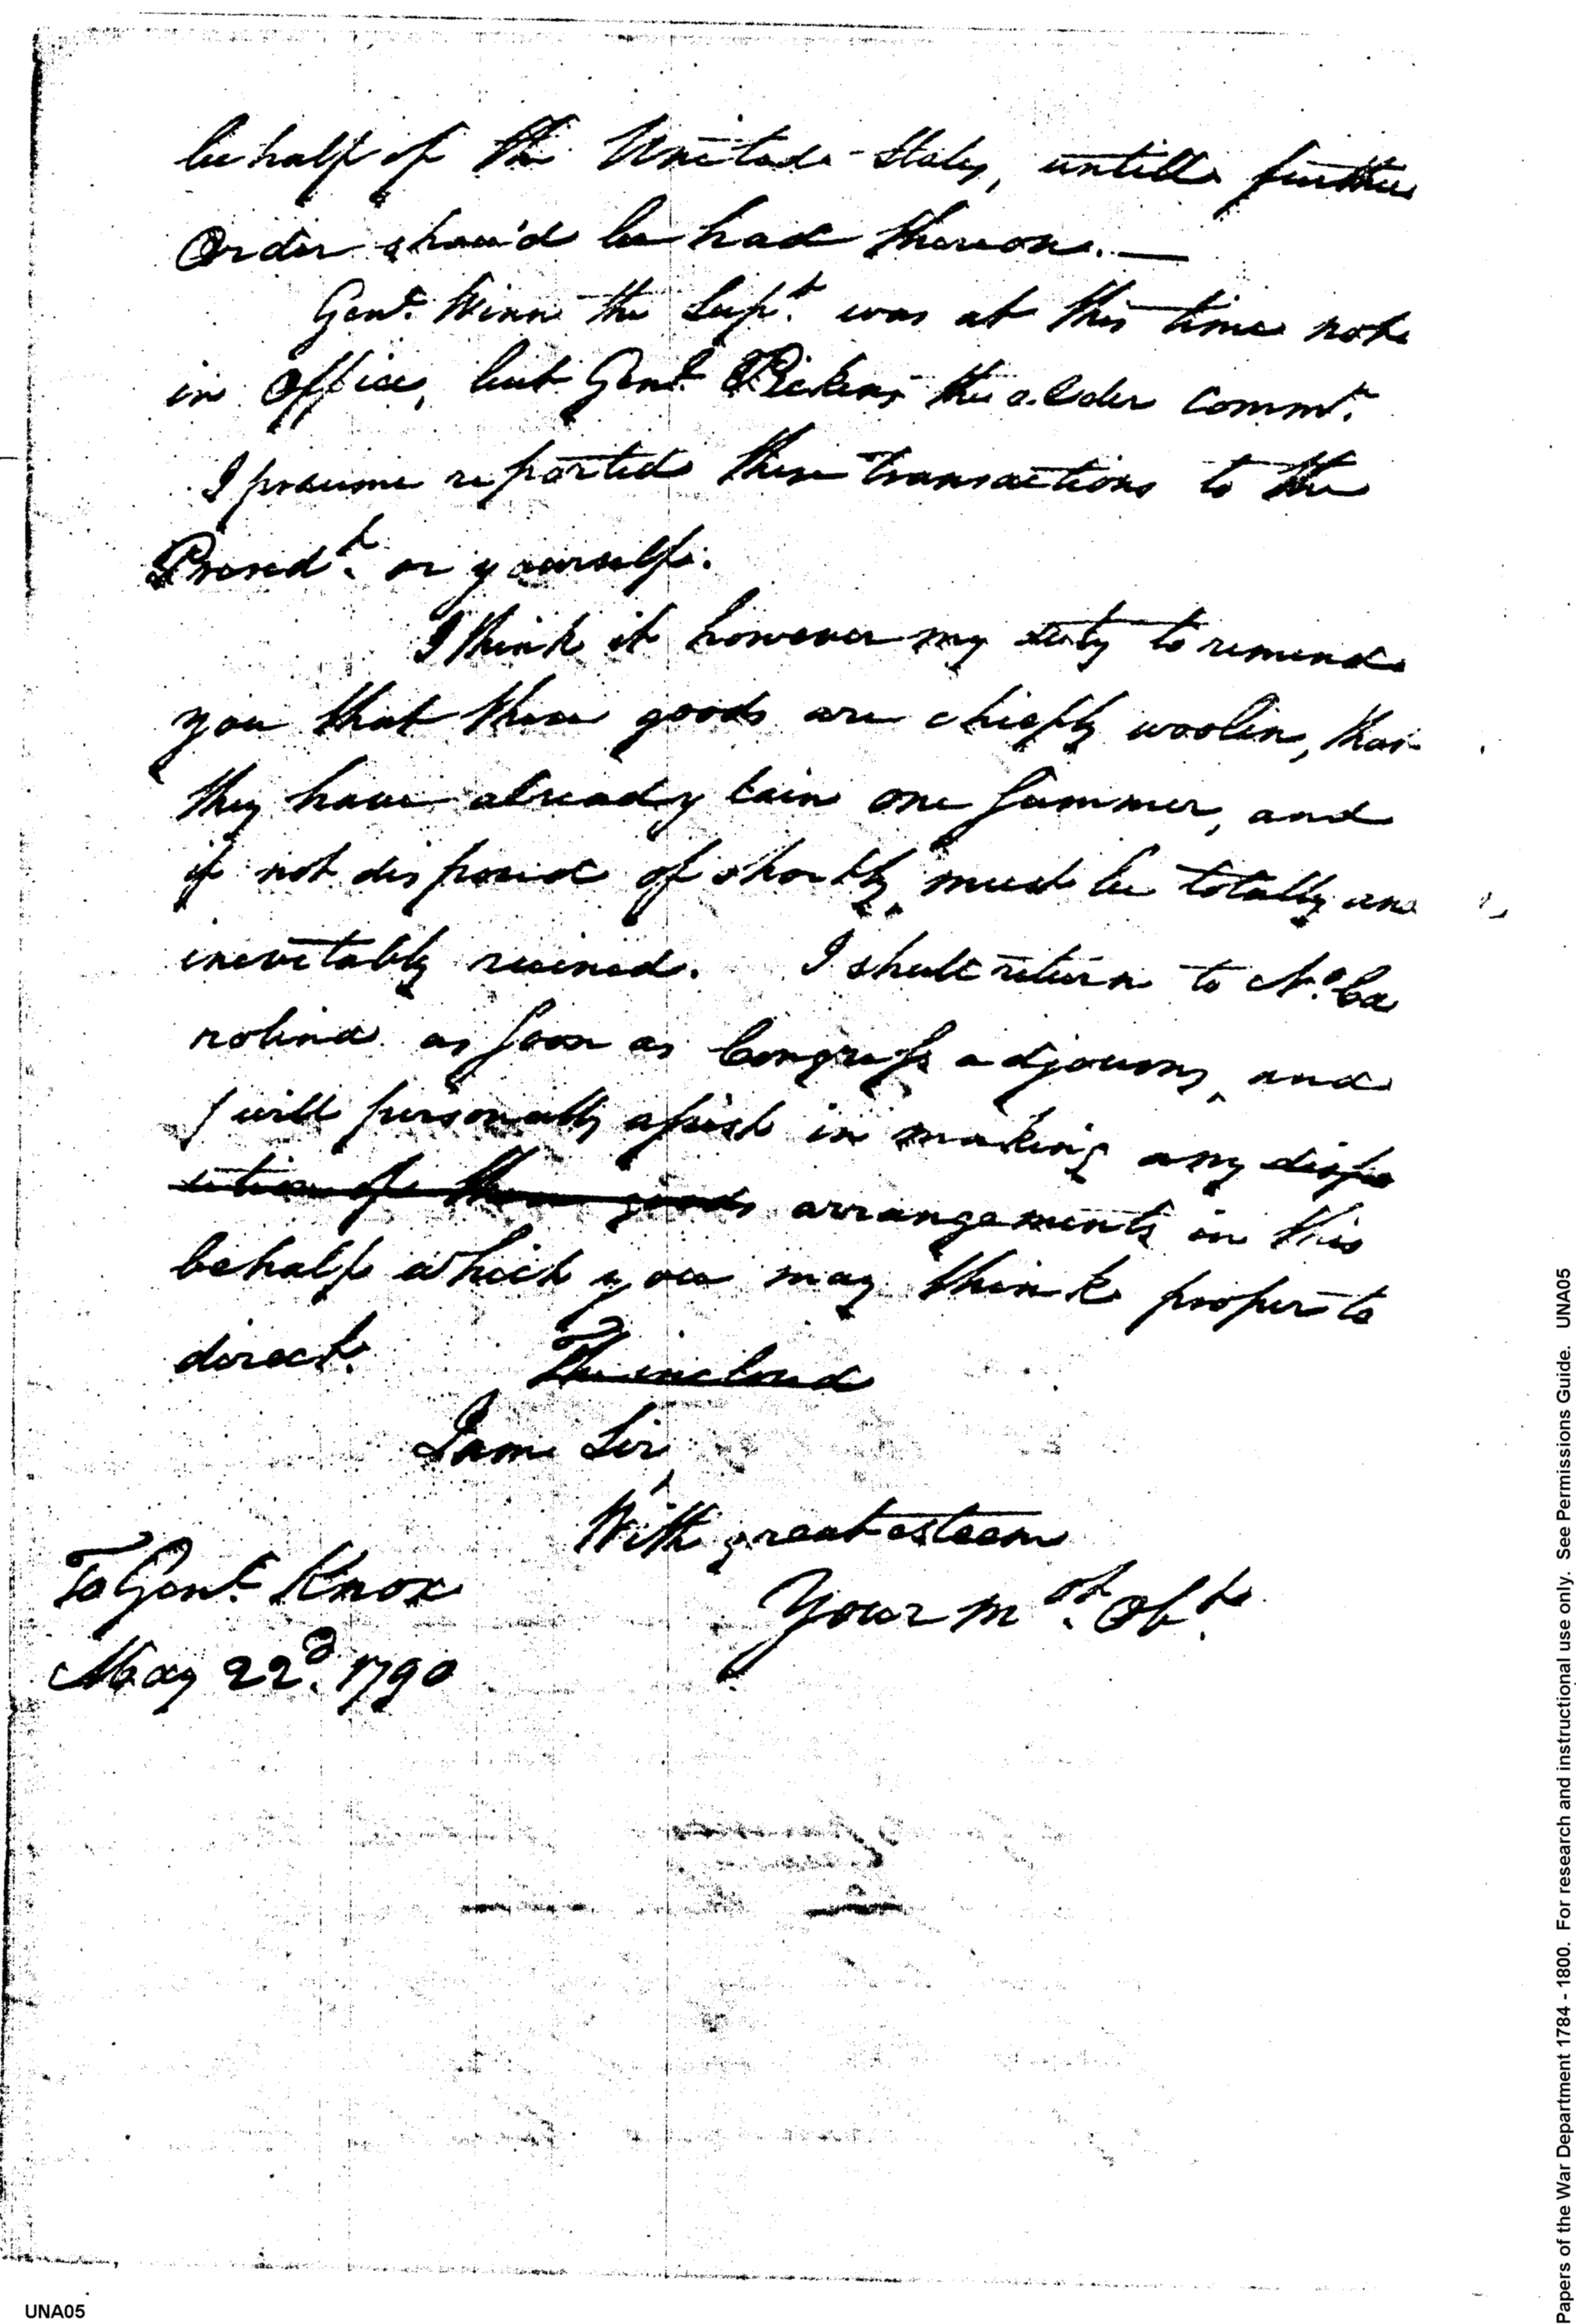 behalf of the United States, untill further
Order shou'd be had thereon. —
Genl. Winn the Supt. was at this time not
in office, but Genl. Pickens the elder commr.
I presume reported these transactions to the
Presedt. or yourself.
I think it however my duty to remind
you that these goods are chiefly woolen, that
they have already lain one Summer, and
if not disposed of shortly, must be totally and
inevitably ruined. I shall return to No. Ca
rolina as soon as Congress adjourns, and
I will personally assist in making any dispo
sition of these goods arrangements in this
behalf which you may think proper to
direct. The inclosed
I am Sir,
With great esteem
Your mo st. Obt.
To Genl. Knox
May 22d. 1790
UNA05
Papers of the War Department 1784 - 1800. For research and instructional use only. See Permissions Guide. UNA05